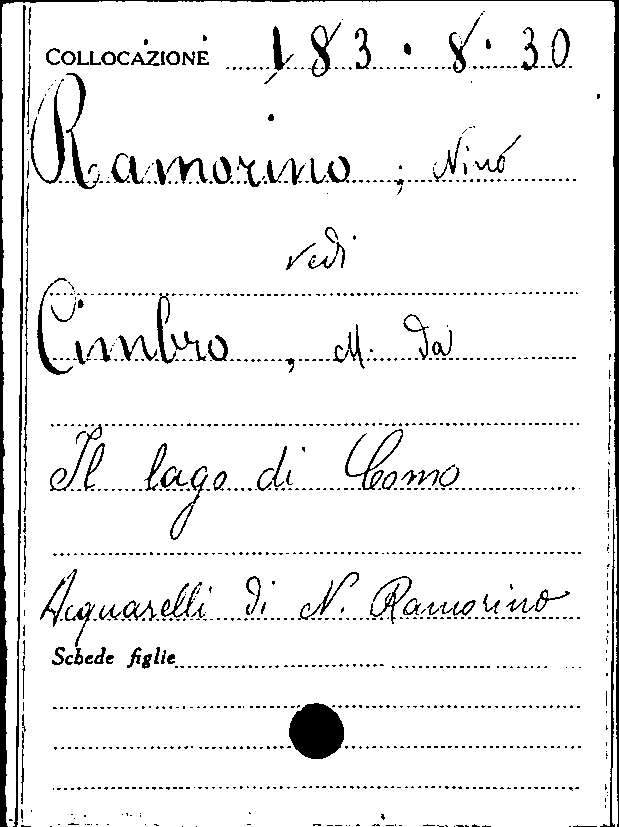 COLLOCAZIONE 183.8.30
Ramorino, Nino
vedi
Cimbro, M. Da
Il lago di Como
Acquarelli di N. Ramorino
Schede figlie